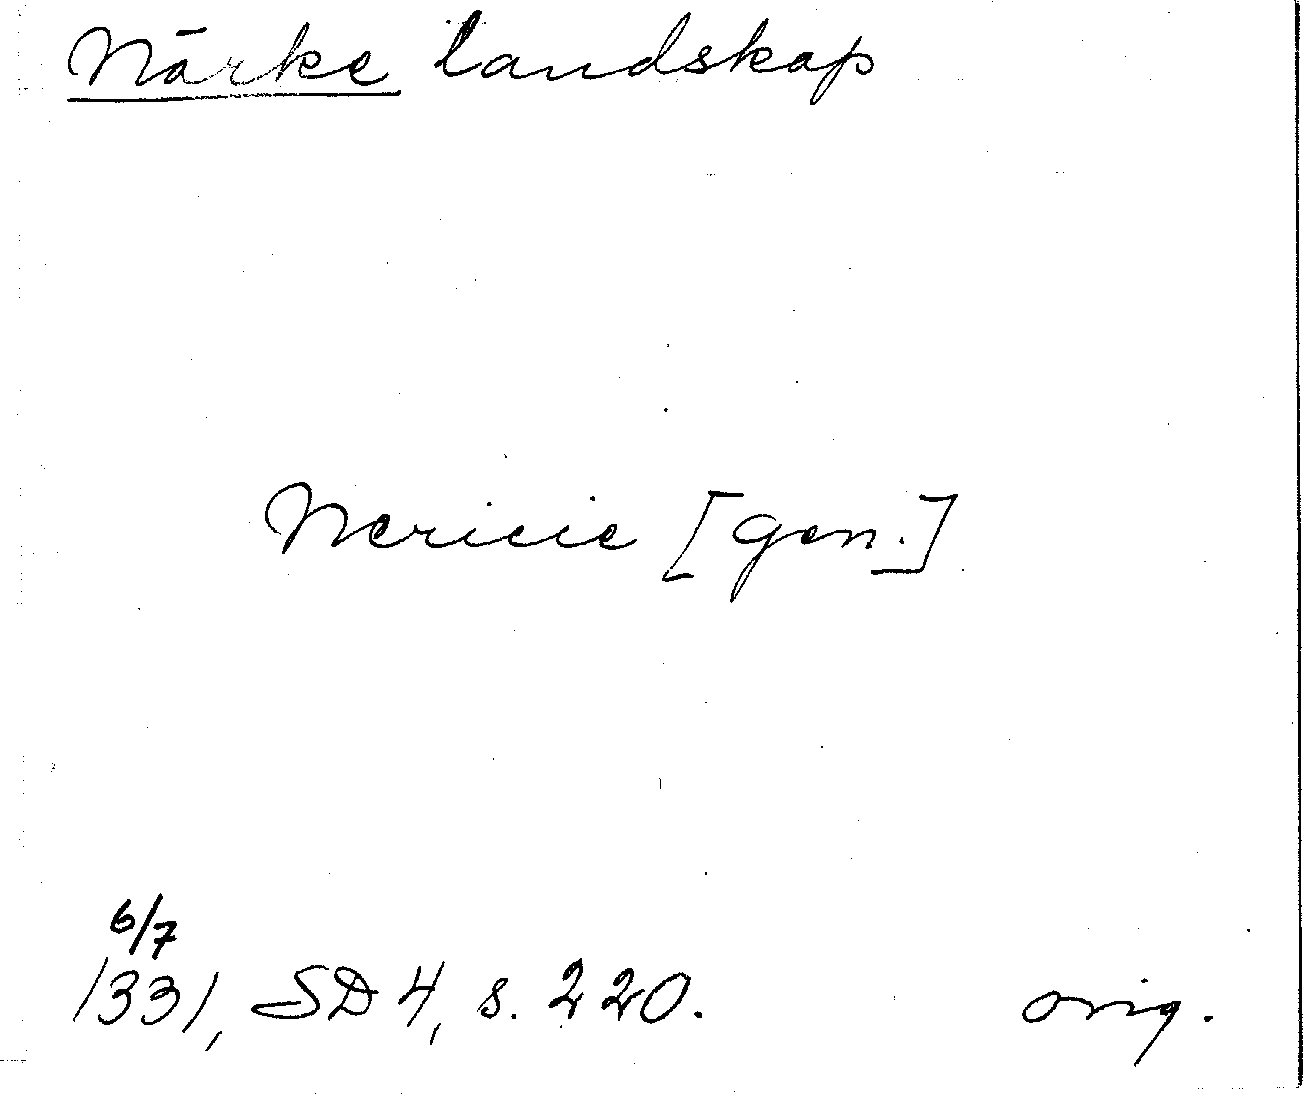 Närke landskap
Nericie [gen.]
6/7
1331, SD 4, s. 220. orig.